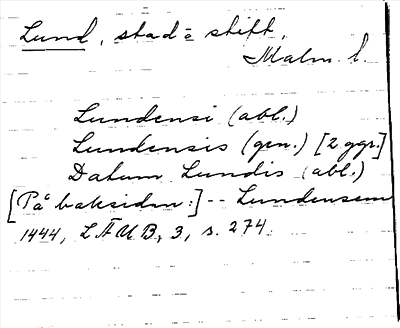 Lund, stad o stift,
Malm. l.
Lundensi (abl.)
Lundensis (gen.) [2 ggr.]
Datum Lundis (abl.)
[På baksidan:] -- Lundensem
1444, LÄUB, 3, s. 274.